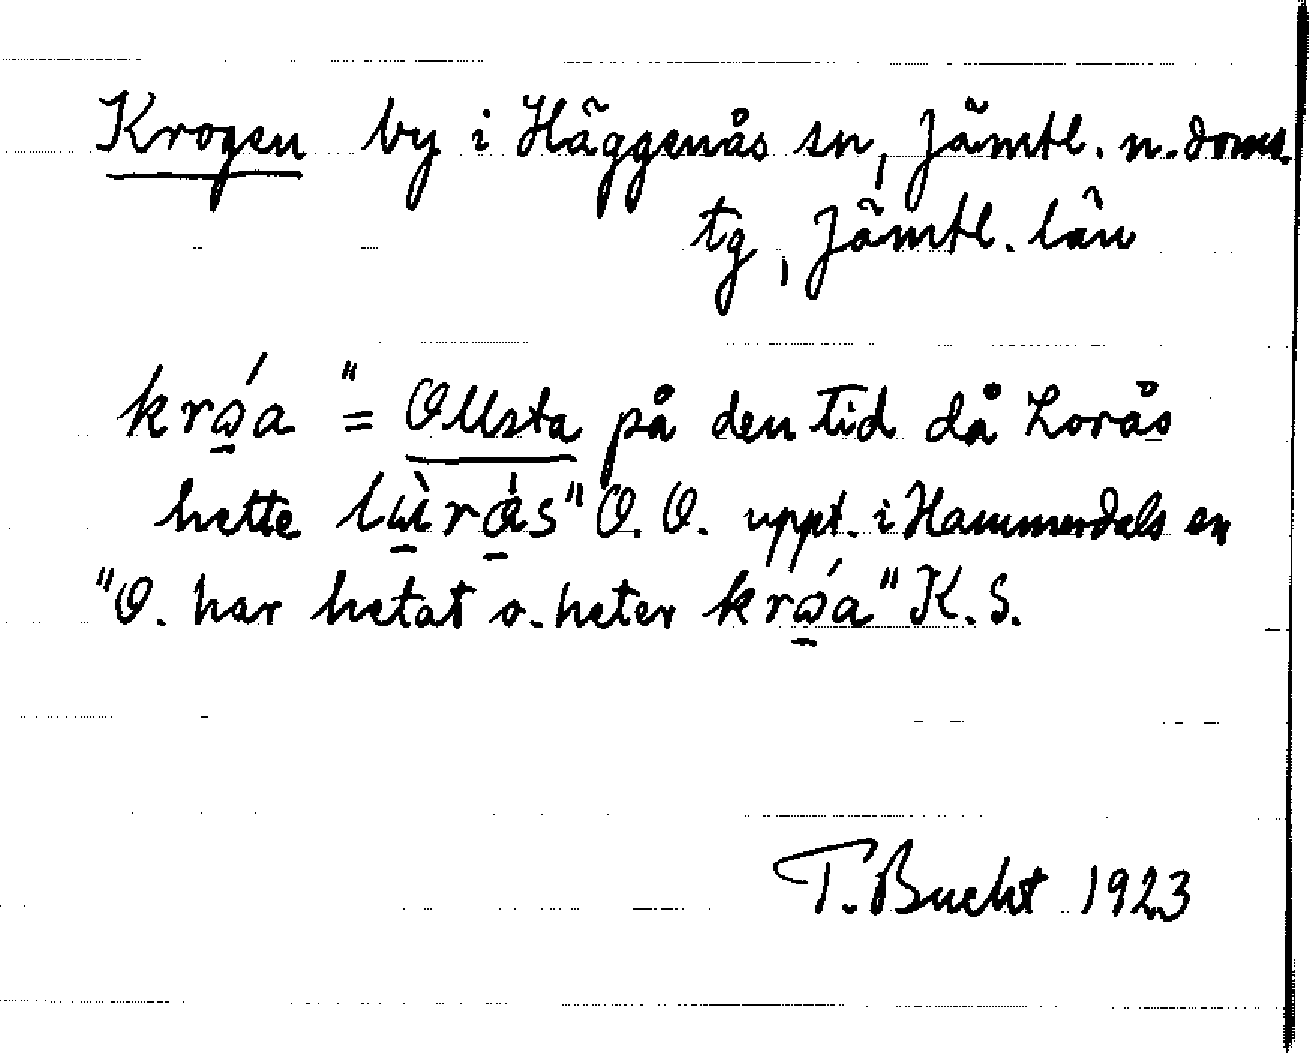 Krogen by i Häggenås sn, Jämtl. n. doms.
tg, Jämtl. län
krώ̱a "= Ollsta på den tid då Lorås
hette lὼ̱rå̱s" O. O. uppt. i Hammerdals sn
"O. har hetat o. heter krώ̱a" K. S.
T. Bucht 1923